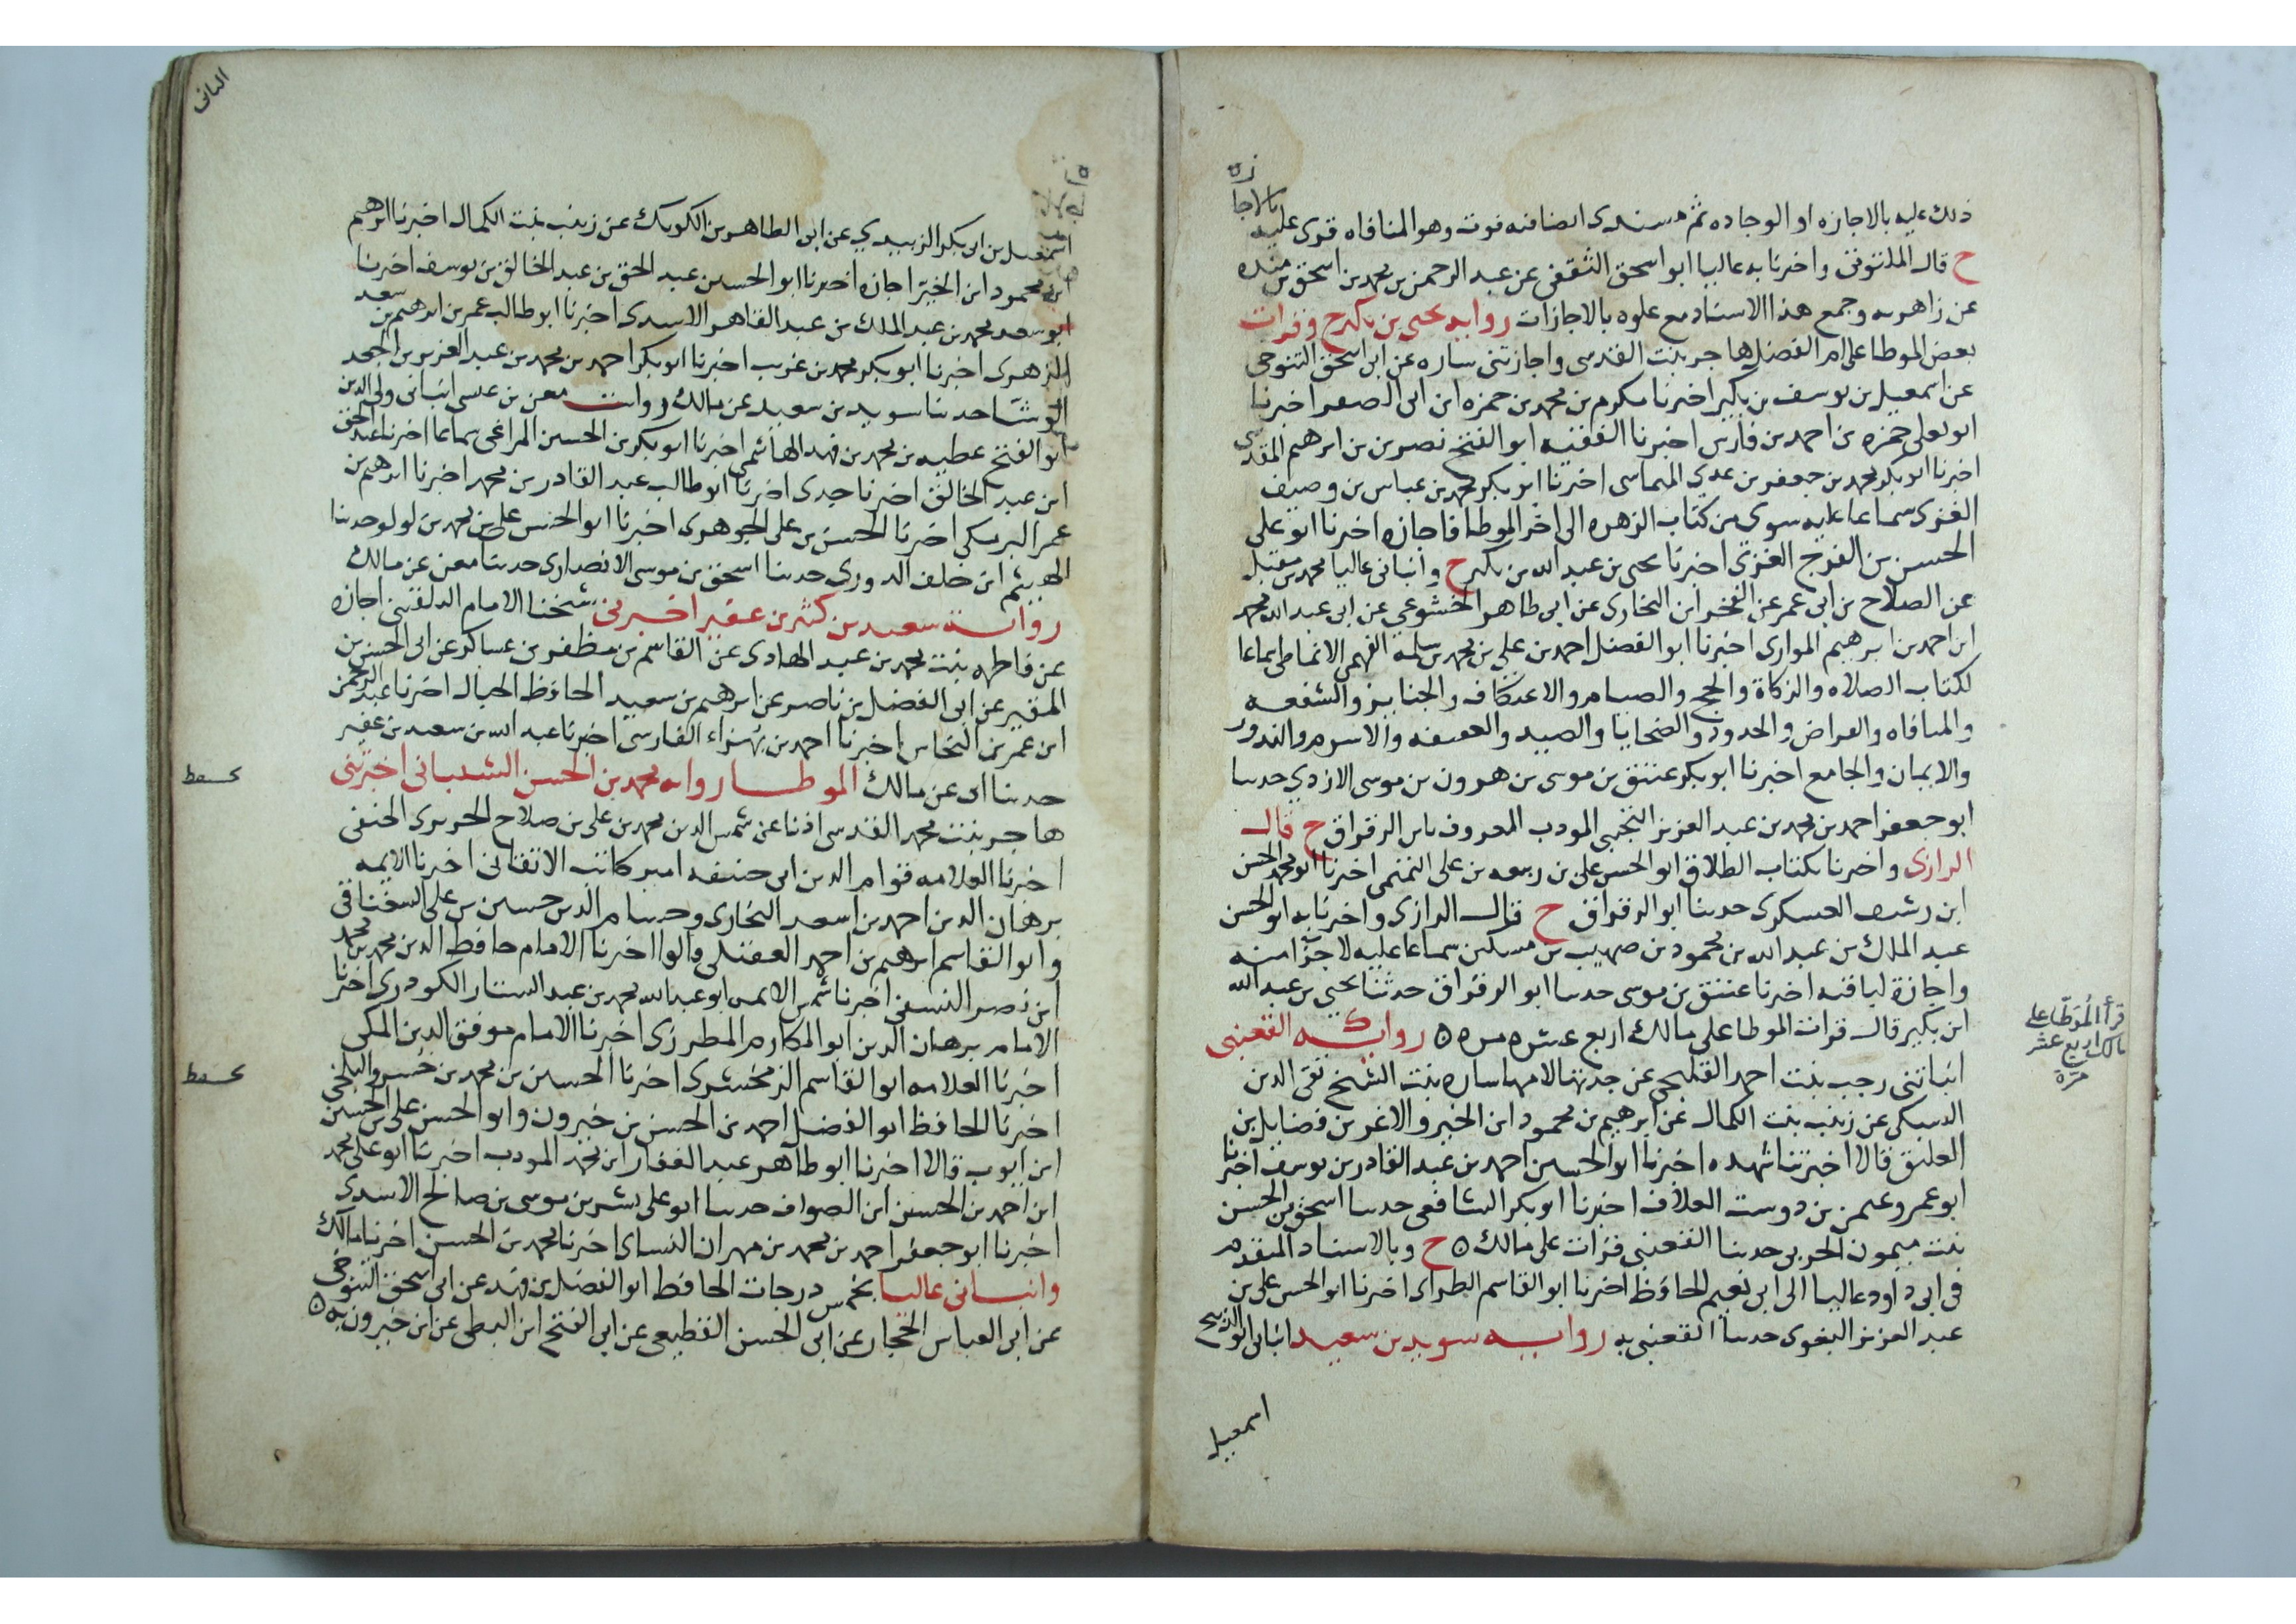 ذلك عليه بالاجازه او الوجاده ثم مسندى ايضا فيه فوت وهو المنافاه قوى عليه بالاجازه
ح قال الملتوتى واخبرنا به عاليا ابو اسحق الثقفى عن عبد الرحمن بن محمد بن اسحق بن منده
عن زاهر به وجمع هذا الاسناد مع علوه بالاجازات روايه يحيى بن بكير ح وقرات
بعض الموطا على ام الفضل هاجر بنت القدسى واجازتنى ساره عن ابى اسحق التنوخى
عن اسمعيل بن يوسف بن بكير اخبرنا مكرم بن محمد بن حمزه ابن ابى الصقر اخبرنا
ابو يعلى حمزه بن احمد بن فارس اخبرنا الفقيه ابو الفتح نصر بن ابرهيم المقدسى
اخبرنا ابو بكر محمد بن جعفر بن على الميماسى اخبرنا ابو بكر محمد بن عباس بن وصيف
الغزى سماعا عليه سوى من كتاب الزهره الى اخر الموطا فاجازه اخبرنا ابو على
الحسن بن الفرج الغزى اخبرنا يحيى بن عبد الله بن بكير ح وانبانى عاليا محمد بن مقبل
عن الصلاح بن ابى عمر عن الفخر ابن البخارى عن ابى طاهر الخشوعى عن ابى عبد الله محمد
ابن احمد بن ابرهيم الموارى اخبرنا ابو الفضل احمد بن على بن محمد بن سلمه الفهمى الانماطى سماعا
لكتاب الصلاه والزكاة والحج والصيام والاعتكاف والجنايز والشفعه
والمساقاه والقراض والحدود والضحايا والصيد والعقيقه والاشربه والنذور
والايمان والجامع اخبرنا ابو بكر عتيق بن موسى بن هرون بن موسى الازدي حدثنا
ابو جعفر احمد بن محمد بن عبد العزيز التجيبى المودب المعروف بابى الرقراق ح قال
الرازى واخبرنا بكتاب الطلاق ابو الحسن على بن ربيعه بن على التميمى اخبرنا ابو محمد الحسن
ابن رشيق العسكرى حدثنا ابو الرقراق ح قال الرازى واخبرنا به ابو الحسن
عبد الملك بن عبد الله بن محمود بن صهيب بن مسكين سماعا عليه لاجزا منه
واجازة لباقيه اخبرنا عتيق بن موسى حدثنا ابو الرقراق حدثنا يحيى بن عبد الله
ابن بكير قال قرات الموطا على مالك اربع عشره مره روايه القعنبى
انباتنى رجب بنت احمد القليجى عن جدتها لامها ساره بنت الشيخ تقى الدين
السبكى عن زينب بنت الكمال عن ابرهيم بن محمود ابن الخير والاغر بن فضايل بن
العليق قالا اخبرتنا شهده اخبرنا ابو الحسين احمد بن عبد القادر بن يوسف اخبرنا
ابو عمرو عثمن بن دوست العلاف اخبرنا ابو بكر الشافعى حدثنا اسحق بن الحسن
بنت ميمون الحربى حدثنا القعنبى قرات على مالك ح وبالاسناد المتقدم
فى ابى داود عاليا الى ابى نعيم الحافظ اخبرنا ابو القاسم الطبرانى اخبرنا ابو الحسن على بن
عبد العزيز البغوى حدثنا القعنبى به روايه سويد بن سعيد انبانى ابو الذبيح
اسمعيل
قرأ المُوَطّا على
مالك اربع عشر
مرّة
اسمعيل بن ابى بكر الزبيدي عن ابى الطاهر بن الكويك عن زينب بنت الكمال اخبرنا ابرهيم
ابن محمود ابن الخير اجازه اخبرنا ابو الحسين عبد الحق بن عبد الخالق بن يوسف اخبرنا
ابو سعد محمد بن عبد الملك بن عبد القاهر الاسدى اخبرنا ابو طالب عمر بن ابرهيم بن سعيد
الزهرى اخبرنا ابو بكر محمد بن غريب اخبرنا ابو بكر احمد بن محمد بن عبد العزيز بن الجعد
الوشا حدثنا سويد بن سعيد عن مالك روايت معن بن عيسى انبانى ولى الدين
ابو الفتح عطيه بن محمد بن فهد الهاشمى اخبرنا ابو بكر بن الحسين المراغى سماعا اخبرنا عبد الحق
ابن عبد الخالق اخبرنا جدى اخبرنا ابو طالب عبد القادر بن محمد اخبرنا ابرهيم بن
عمر البرمكى اخبرنا الحسن بن على الجوهرى اخبرنا ابو الحسن على بن محمد بن لولو حدثنا
الهيثم ابن خلف الدورى حدثنا اسحق بن موسى الانصارى حدثنا معن عن مالك
روايـة سعيد بن كثير بن عفير اخبرنى شيخنا الامام البلقينى اجازه
عن فاطمه بنت محمد بن عبد الهادى عن القاسم بن مظفر بن عساكر عن ابى الحسن بن
المقير عن ابى الفضل بن ناصر عن ابرهيم بن سعيد الحافظ الحبال اخبرنا عبد الرحمن
ابن عمر بن النحاس اخبرنا احمد بن بهزاد الفارسى اخبرنا عبد الله بن سعيد بن عفير
حدثنا ابى عن مالك الموطا روايه محمد بن الحسن الشيبانى اخبرتنى
هاجر بنت محمد القدسى اذنا عن شمس الدين محمد بن على بن صلاح الحريرى الحنفى
اخبرنا العلامه قوام الدين ابى حنيفه امير كاتب الاتقانى اخبرنا الايمه
برهان الدين احمد بن اسعد البخارى وحسام الدين حسين بن على السغناقى
وابو القاسم ابرهيم بن احمد العقيلى قالوا اخبرنا الامام حافظ الدين محمد بن محمد
ابن نصر النسفى اخبرنا شمس الايمه ابو عبد الله محمد بن عبد الستار الكردرى اخبرنا
الامام برهان الدين ابو المكارم المطرزى اخبرنا الامام موفق الدين المكى
اخبرنا العلامه ابو القاسم الزمخشرى اخبرنا الحسين بن محمد بن خسرو البلخى
اخبرنا الحافظ ابو الفضل احمد بن الحسن بن خيرون وابو الحسن على بن الحسين
ابن ايوب قالا اخبرنا ابو طاهر عبد الغفار ابن محمد المودب اخبرنا ابو على محمد
ابن احمد بن الحسن ابن الصواف حدثنا ابو على بشر بن موسى بن صالح الاسدى
اخبرنا ابو جعفر احمد بن محمد بن مهران النساى اخبرنا محمد بن الحسن اخبرنا مالك
وانبانى عاليا بخمس درجات الحافظ ابو الفضل بن فهد عن ابى اسحق التنوخى
عن ابى العباس الحجار عن ابى الحسن القطيعى عن ابى الفتح ابن البطى عن ابن خيرون به